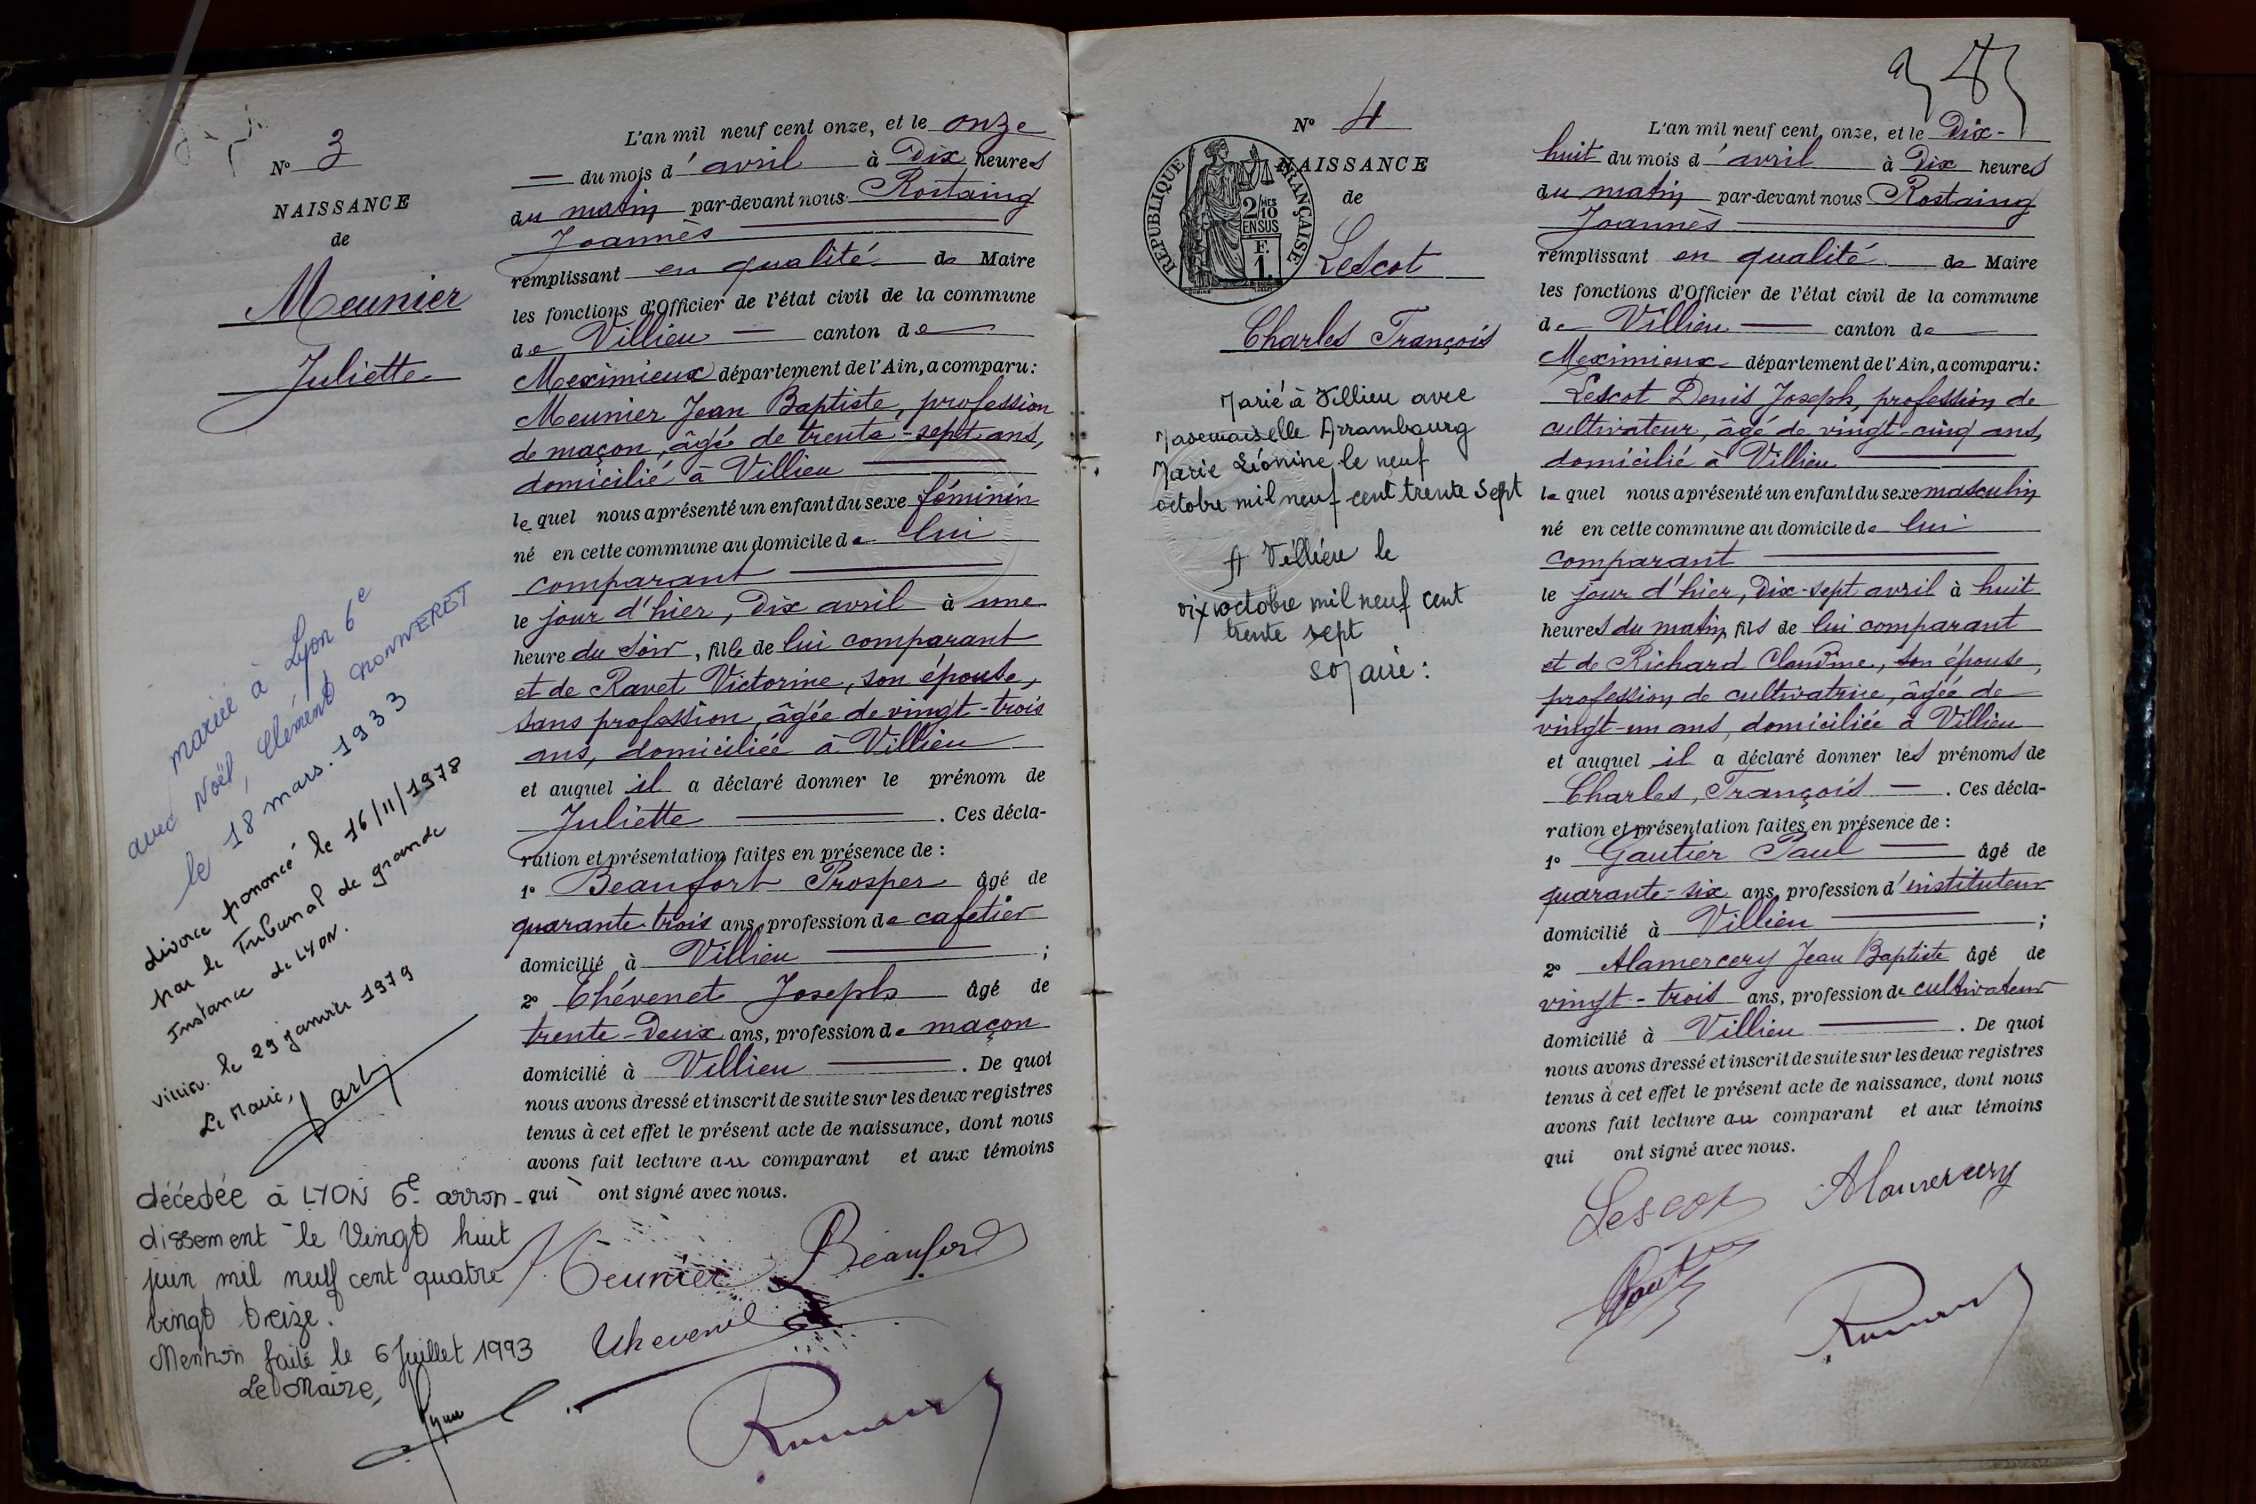 N° 3
NAISSANCE
de
Meunier
Juliette
mariée à Lyon 6e
avec Noël, Clément MONNERET
le 18 mars 1933
divorce prononcé le 16/11/1978
par le Tribunal de grande
Instance de LYON.
Villieu le 29 janvier 1979
Le Maire,
décédée à LYON 6e arron-
dissement le Vingt huit
juin mil neuf cent quatre
vingt treize.
Mention faite le 6 Juillet 1993
Le Maire,
L'an mil neuf cent onze, et le onze
— du mois d'avril à Dix heures
du matin par-devant nous Rostaing
Joannès
remplissant en qualité de Maire
les fonctions d'Officier de l'état civil de la commune
de Villieu — canton de
Meximieux département de l'Ain, a comparu:
Meunier Jean Baptiste, profession
de maçon, âgé de trente-sept ans,
domicilié à Villieu
lequel nous a présenté un enfant du sexe féminin
né en cette commune au domicile de lui
comparant
le jour d'hier, Dix avril à une
heure du soir, fille de lui comparant
et de Ravet Victorine, son épouse,
sans profession, âgée de vingt-trois
ans, domiciliée à Villieu
et auquel il a déclaré donner le prénom de
Juliette . Ces décla-
ration et présentation faites en présence de :
1° Beaufort Prosper âgé de
quarante-trois ans, profession de cafetier
domicilié à Villieu ;
2° Thévenet Joseph âgé de
trente-Deux ans, profession de maçon
domicilié à Villieu . De quoi
nous avons dressé et inscrit de suite sur les deux registres
tenus à cet effet le présent acte de naissance, dont nous
avons fait lecture au comparant et aux témoins
qui ont signé avec nous.
Meunier Beaufort
Thevenet
N° 4
NAISSANCE
de
RÉPUBLIQUE FRANÇAISE
2/10 EN SUS
F. 1.
Lescot
Charles François
Marié à Villieu avec
Mademoiselle Arrambourg
Marie Léonine le neuf
octobre mil neuf cent trente sept
A Villieu le
dix octobre mil neuf cent
trente sept
Le Maire :
L'an mil neuf cent onze, et le Dix-
huit du mois d'avril à Dix heures
du matin par-devant nous Rostaing
Joannès
remplissant en qualité de Maire
les fonctions d'Officier de l'état civil de la commune
de Villieu — canton de
Meximieux département de l'Ain, a comparu:
Lescot Denis Joseph, profession de
cultivateur, âgé de vingt-cinq ans,
domicilié à Villieu
lequel nous a présenté un enfant du sexe masculin
né en cette commune au domicile de lui
comparant
le jour d'hier, Dix-sept avril à huit
heures du matin, fils de lui comparant
et de Richard Claudine, son épouse,
profession de cultivatrice, âgée de
vingt-un ans, domiciliée à Villieu
et auquel il a déclaré donner les prénoms de
Charles, François — . Ces décla-
ration et présentation faites en présence de :
1° Gautier Paul — âgé de
quarante-six ans, profession d'instituteur
domicilié à Villieu ;
2° Alamercery Jean Baptiste âgé de
vingt-trois ans, profession de cultivateur
domicilié à Villieu . De quoi
nous avons dressé et inscrit de suite sur les deux registres
tenus à cet effet le présent acte de naissance, dont nous
avons fait lecture au comparant et aux témoins
qui ont signé avec nous.
Lescot Alamercery